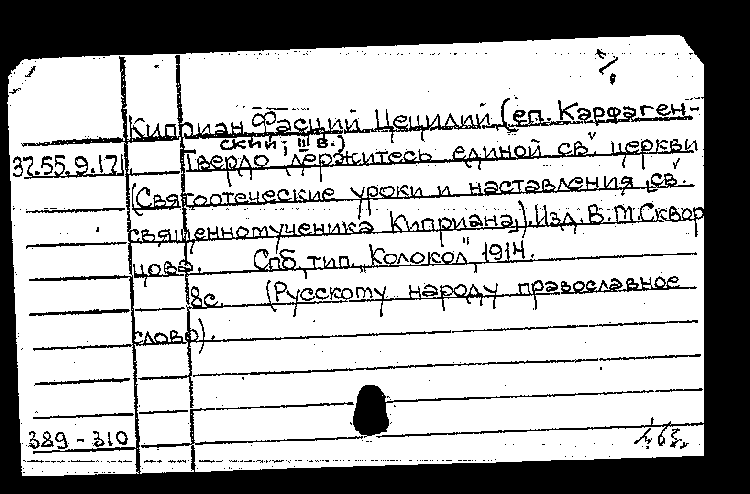 Киприан Фасций Цецилий (еп. Карфаген-
ский; III в.)
37.55.9.171 Твердо держитесь единой св. церкви
(Святоотеческие уроки и наставления св.
священномученика Киприана). Изд. В.М. Сквор
цова. Спб, тип. „Колокол", 1914.
8с. (Русскому народу православное
слово).
389 - 310